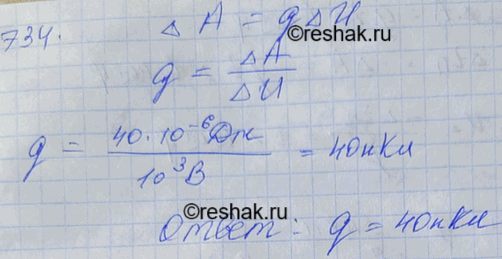 734. ΔA = gΔU
©reshak.ru
g = ΔA / ΔU
g = 40·10⁻⁶Дж / 10³В = 40нКл
©reshak.ru
Ответ: g = 40нКл